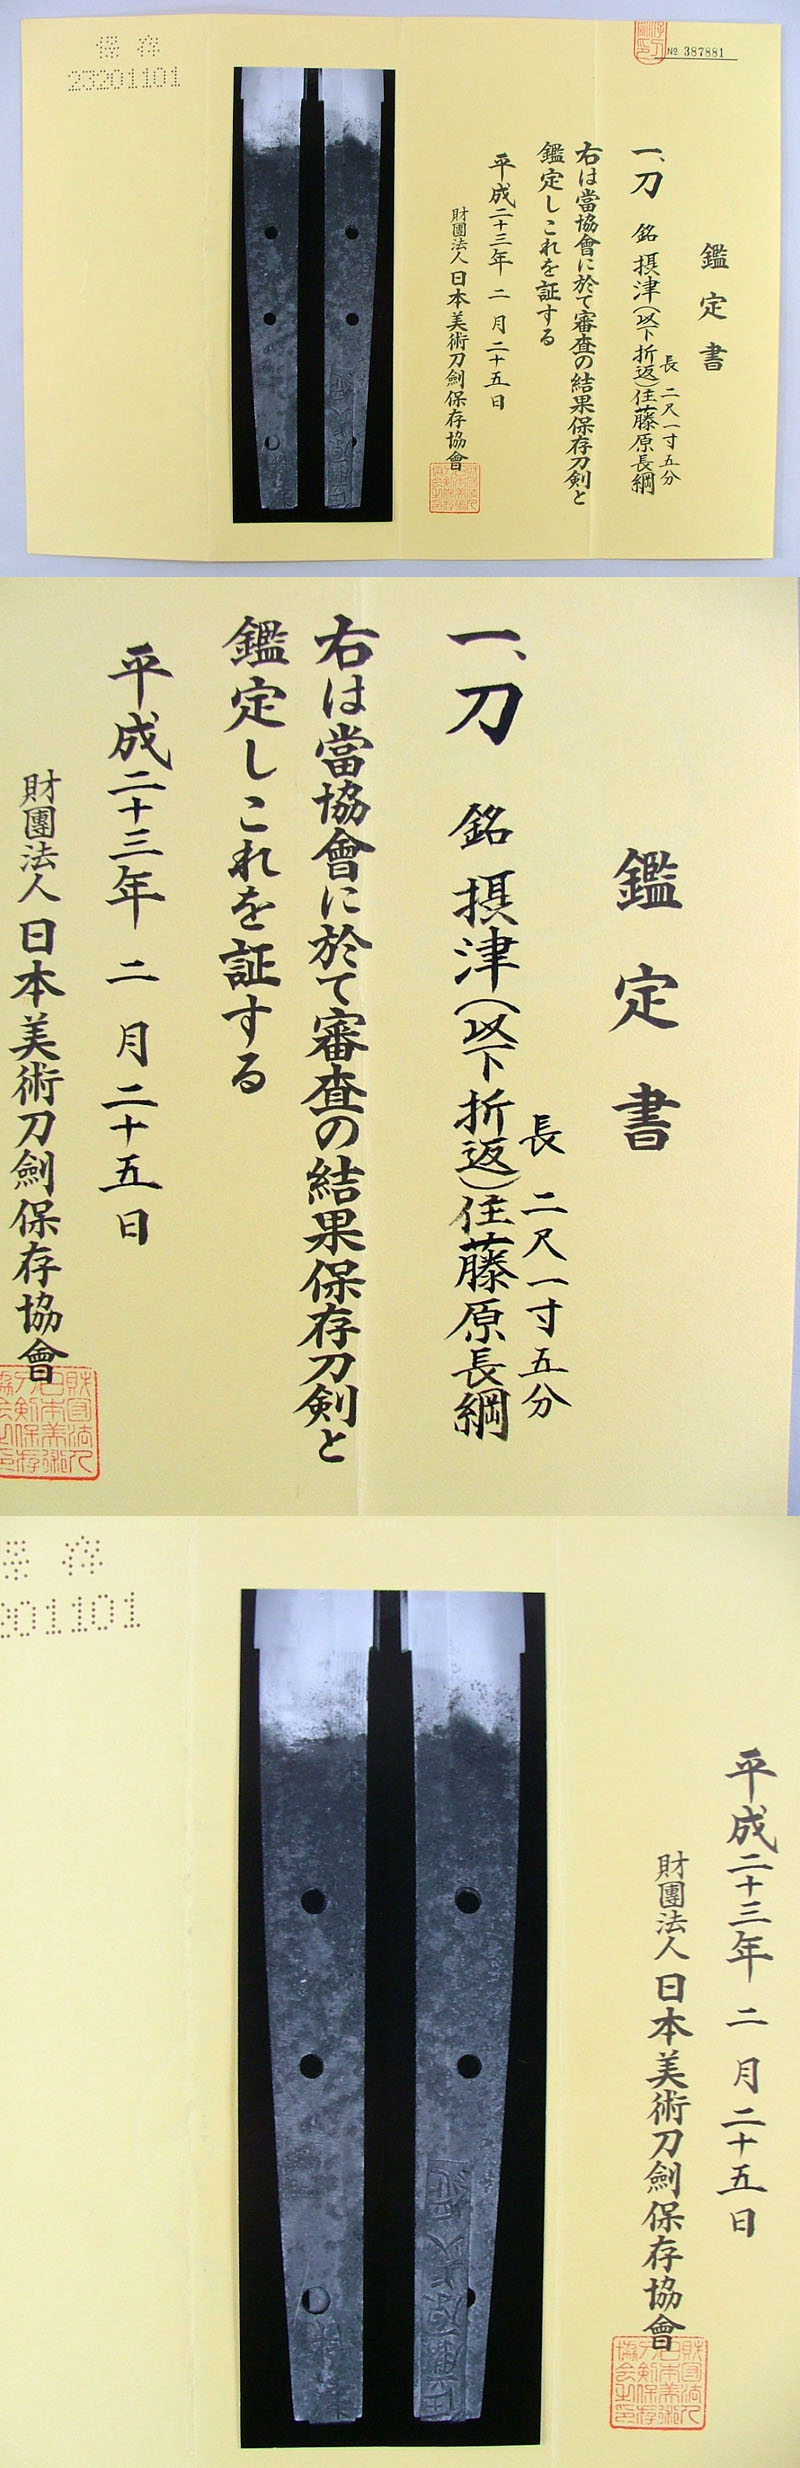 № 387881
鑑定書
一、刀 銘 摂津(以下折返)住藤原長綱
長 二尺一寸五分
右は當協會に於て審査の結果保存刀剣と
鑑定しこれを証する
平成二十三年 二 月 二十五 日
財團法人 日本美術刀劍保存協會
保存
23201101
鑑定書
長 二尺一寸五分
一、刀 銘 摂津(以下折返)住藤原長綱
右は當協會に於て審査の結果保存刀剣と
鑑定しこれを証する
平成二十三年 二 月 二十五 日
財團法人 日本美術刀劍保存協會
平成二十三年 二 月 二十五 日
財團法人 日本美術刀劍保存協會
存
201101